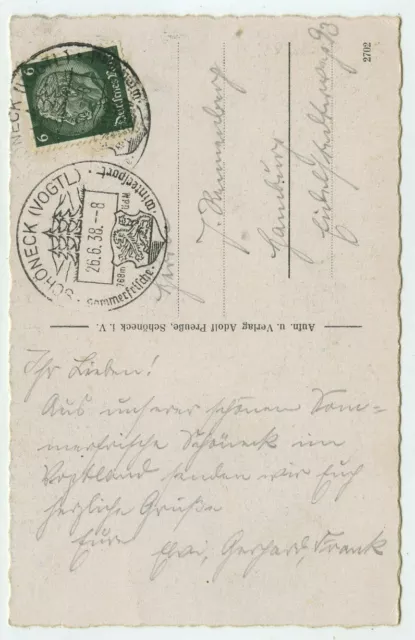 6 Deutsches Reich 6
SCHÖNECK (VOGTL)
26.6.38.--8
768m
Sommerfrische · Wintersport
2702
Familie
Hamburg
Aufn. u. Verlag Adolf Preuße, Schöneck i. V.
Ihr Lieben!
Aus unserer schönen Som-
merfrische Schöneck im
Vogtland senden wir Euch
herzliche Grüße
Eure
Elvi, Gerhard, Frank